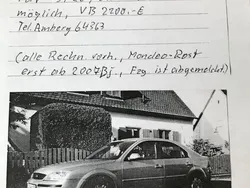 möglich, VB 2200.-E
Tel. Amberg 64363
(alle Rechn. vorh., Mondeo-Rost
erst ab 2007 Bj., Fzg ist abgemeldet)